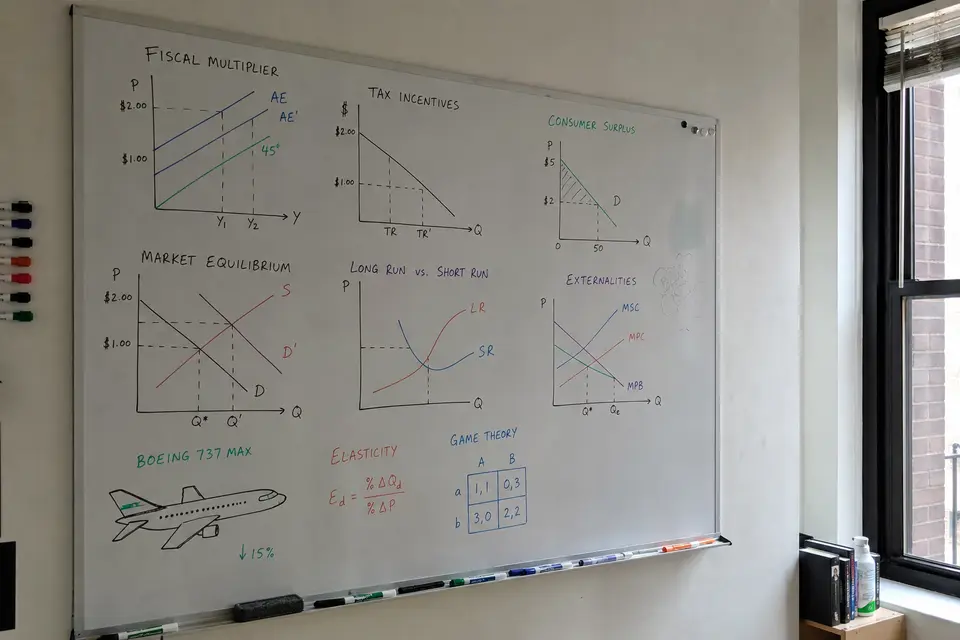 FISCAL MULTIPLIER
P
$2.00
AE
AE'
$1.00
45°
Y₁
Y₂
Y
TAX INCENTIVES
$
$2.00
$1.00
TR
TR'
Q
CONSUMER SURPLUS
P
$5
$2
D
0
50
Q
MARKET EQUILIBRIUM
P
$2.00
S
$1.00
D'
D
Q*
Q'
Q
LONG RUN VS. SHORT RUN
P
LR
SR
Q
EXTERNALITIES
P
MSC
MPC
MPB
Q*
Qe
Q
BOEING 737 MAX
↓ 15%
ELASTICITY
E_d = % ΔQ_d
% ΔP
GAME THEORY
A B
a 1,1 0,3
b 3,0 2,2